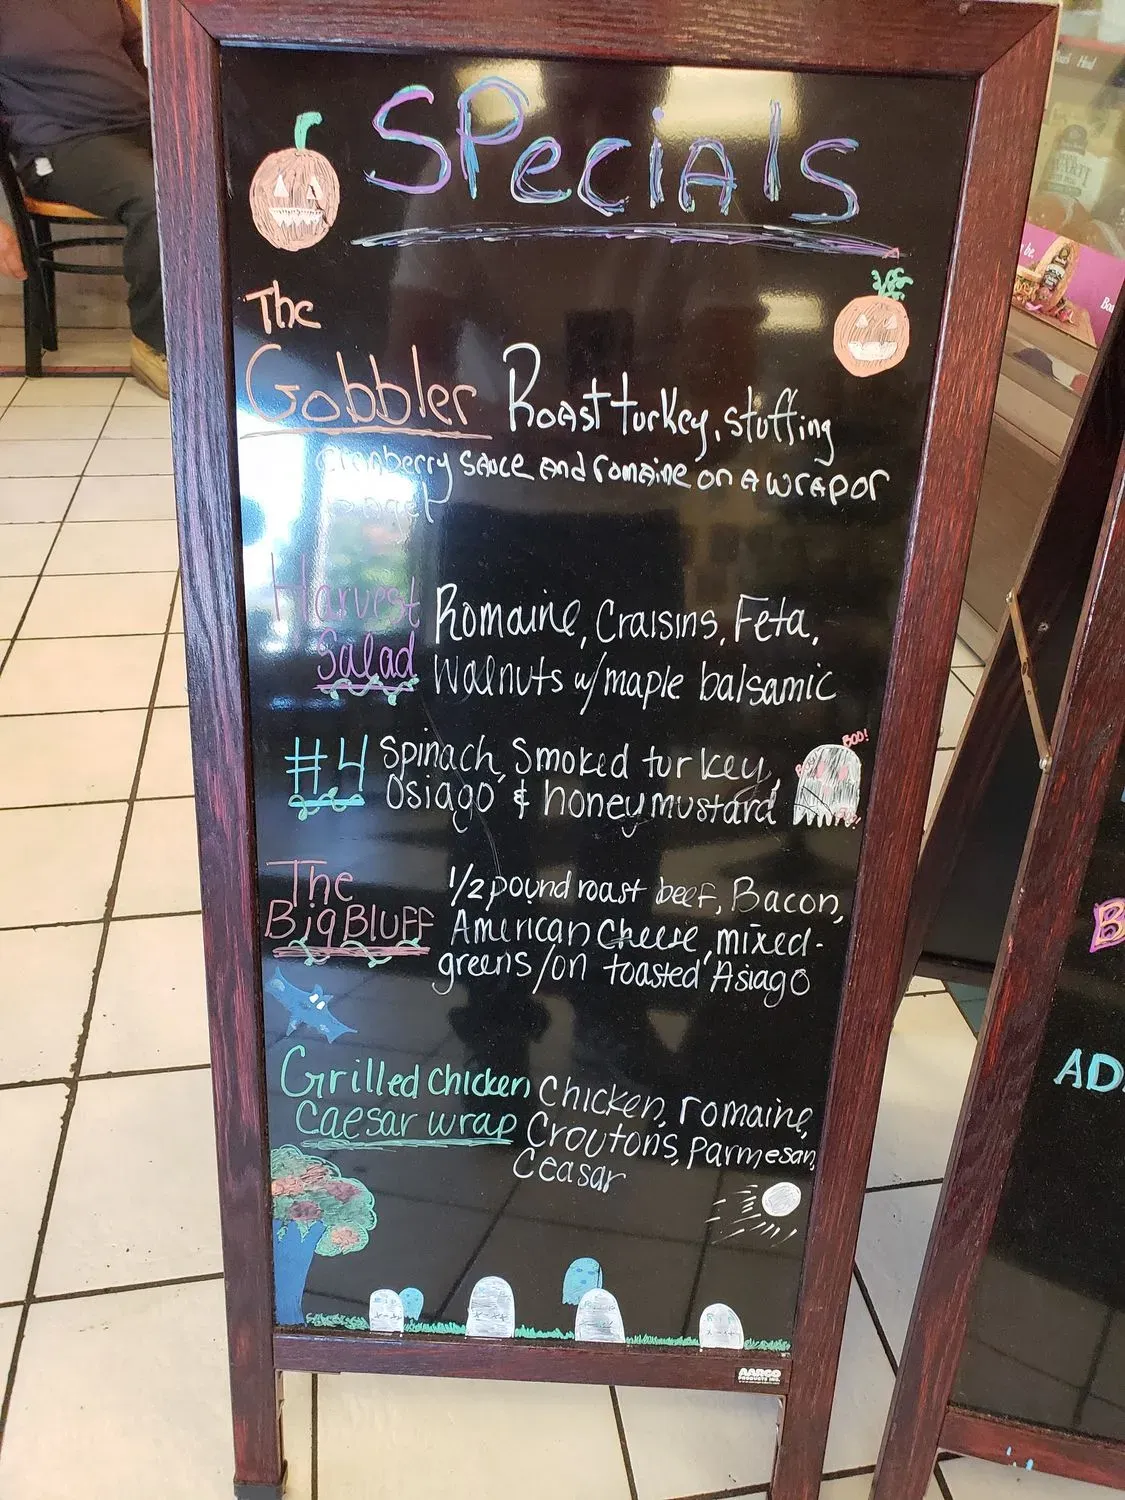 Specials
The
Gobbler Roast turkey, stuffing
cranberry sauce and romaine on a wrap or
bagel
Harvest Romaine, Craisins, Feta,
Salad Walnuts w/ maple balsamic
#4 Spinach, Smoked turkey,
Osiago & honey mustard
BOO!
The 1/2 pound roast beef, Bacon,
Big Bluff American Cheese, mixed-
greens/on toasted Asiago
Grilled Chicken Chicken, romaine,
Caesar wrap Croutons, parmesan,
Ceasar
AARCO
PRODUCTS INC.
B
AD